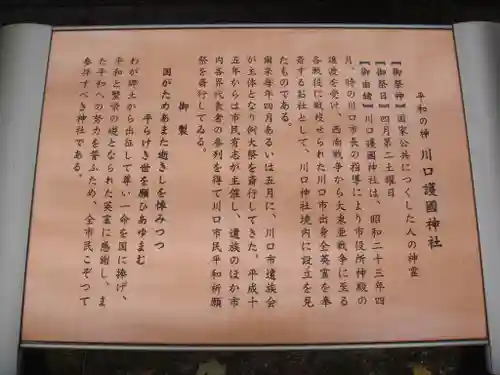 平和の神 川口護國神社
【御祭神】国家公共につくした人の神霊
【御祭日】四月第二土曜日
【御由緒】川口護國神社は、昭和二十三年四
月、時の川口市長の指導により市役所神殿の
譲渡を受け、西南戦争から大東亜戦争に至る
各戦役に戦歿せられた川口市出身全英霊を奉
斎する お社として、川口神社境内に設立を見
たものである。
爾来毎年四月あるいは五月に、川口市遺族会
が主体となり例大祭を斎行してきた。平成十
五年からは市民有志が主催し、遺族のほか市
内各界代表者の参列を得て川口市民平和祈願
祭を斎行してゐる。
御製
国がためあまた逝きしを悼みつつ
平らけき世を願ひあゆまむ
わが郷土から出征して尊い一命を国に捧げ、
平和と繁栄の礎となられた英霊に感謝し、ま
た平和への努力を誓ふため、全市民こぞつて
参拝すべき神社である。